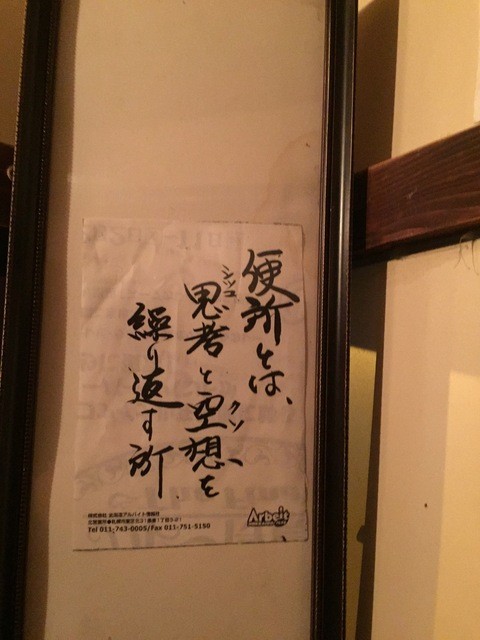 便所とは、
思考と空想を
シッコ
クソ
繰り返す所
Arbeit
株式会社 北海道アルバイト情報社
Tel 011-743-0005/Fax 011-751-5150